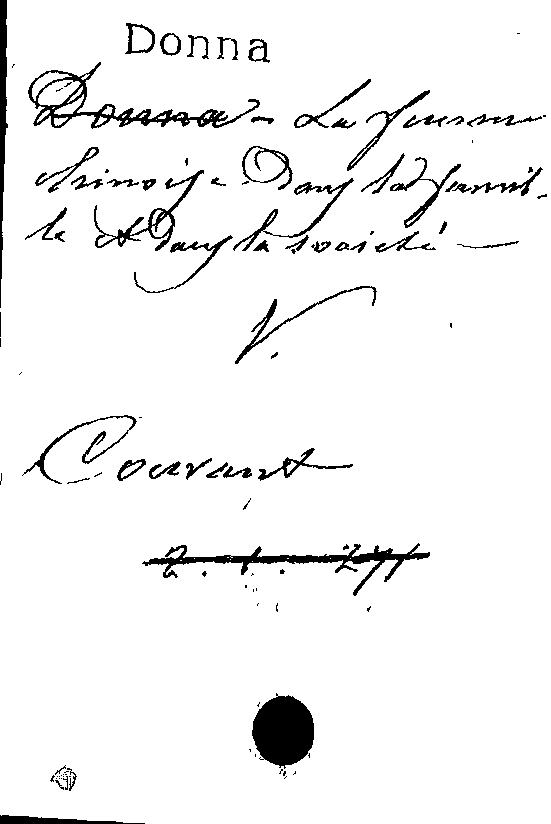 Donna
Donna - La femme
chinoise Dans la famil-
le et Dans la société —
V.
Courant
2. 1. 271